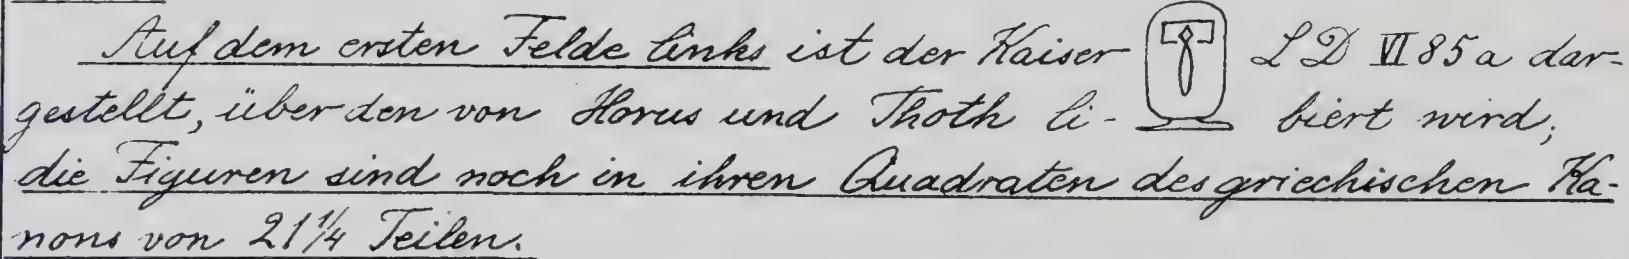 Auf dem ersten Felde links ist der Kaiser LD VI 85a dar-
gestellt, über den von Horus und Thoth li- biert wird;
die Figuren sind noch in ihren Quadraten des griechischen Ka-
nons von 21 1/4 Teilen.